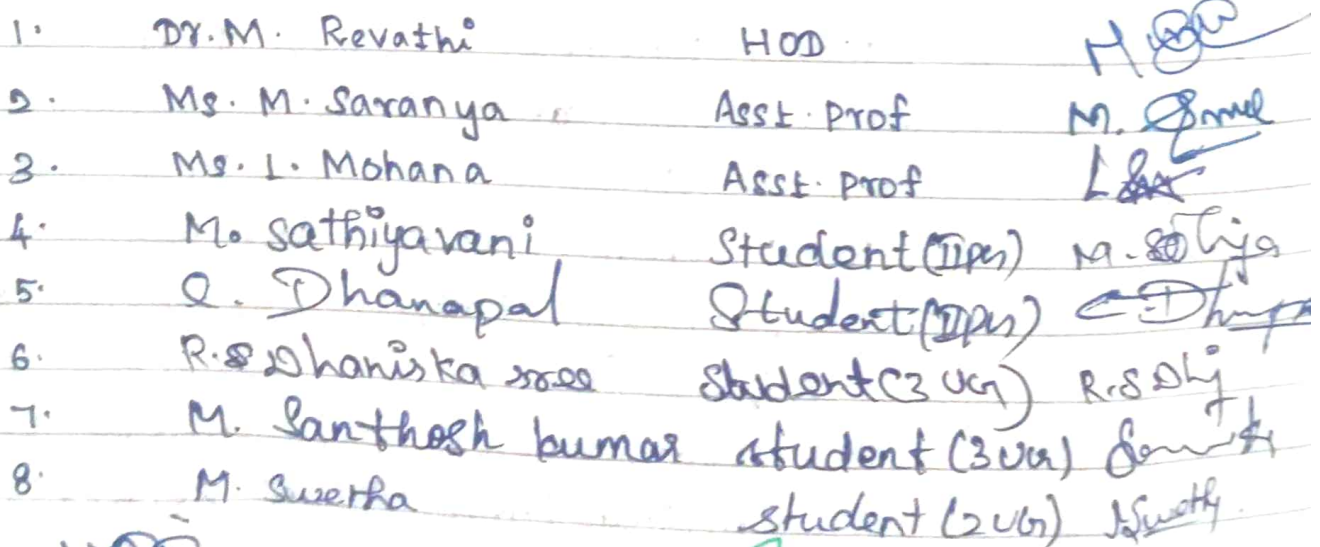 1. Dr. M. Revathi HOD
2. Ms. M. Saranya Asst. Prof
3. Ms. L. Mohana Asst. Prof
4. M. Sathiyavani Student (II PG)
5. Q. Dhanapal Student (II PG)
6. R.S Dhaniska sree Student (3 UG) R.S Dhj
7. M. Santhosh kumar student (3 UG)
8. M. Swetha student (2 UG) Swethy